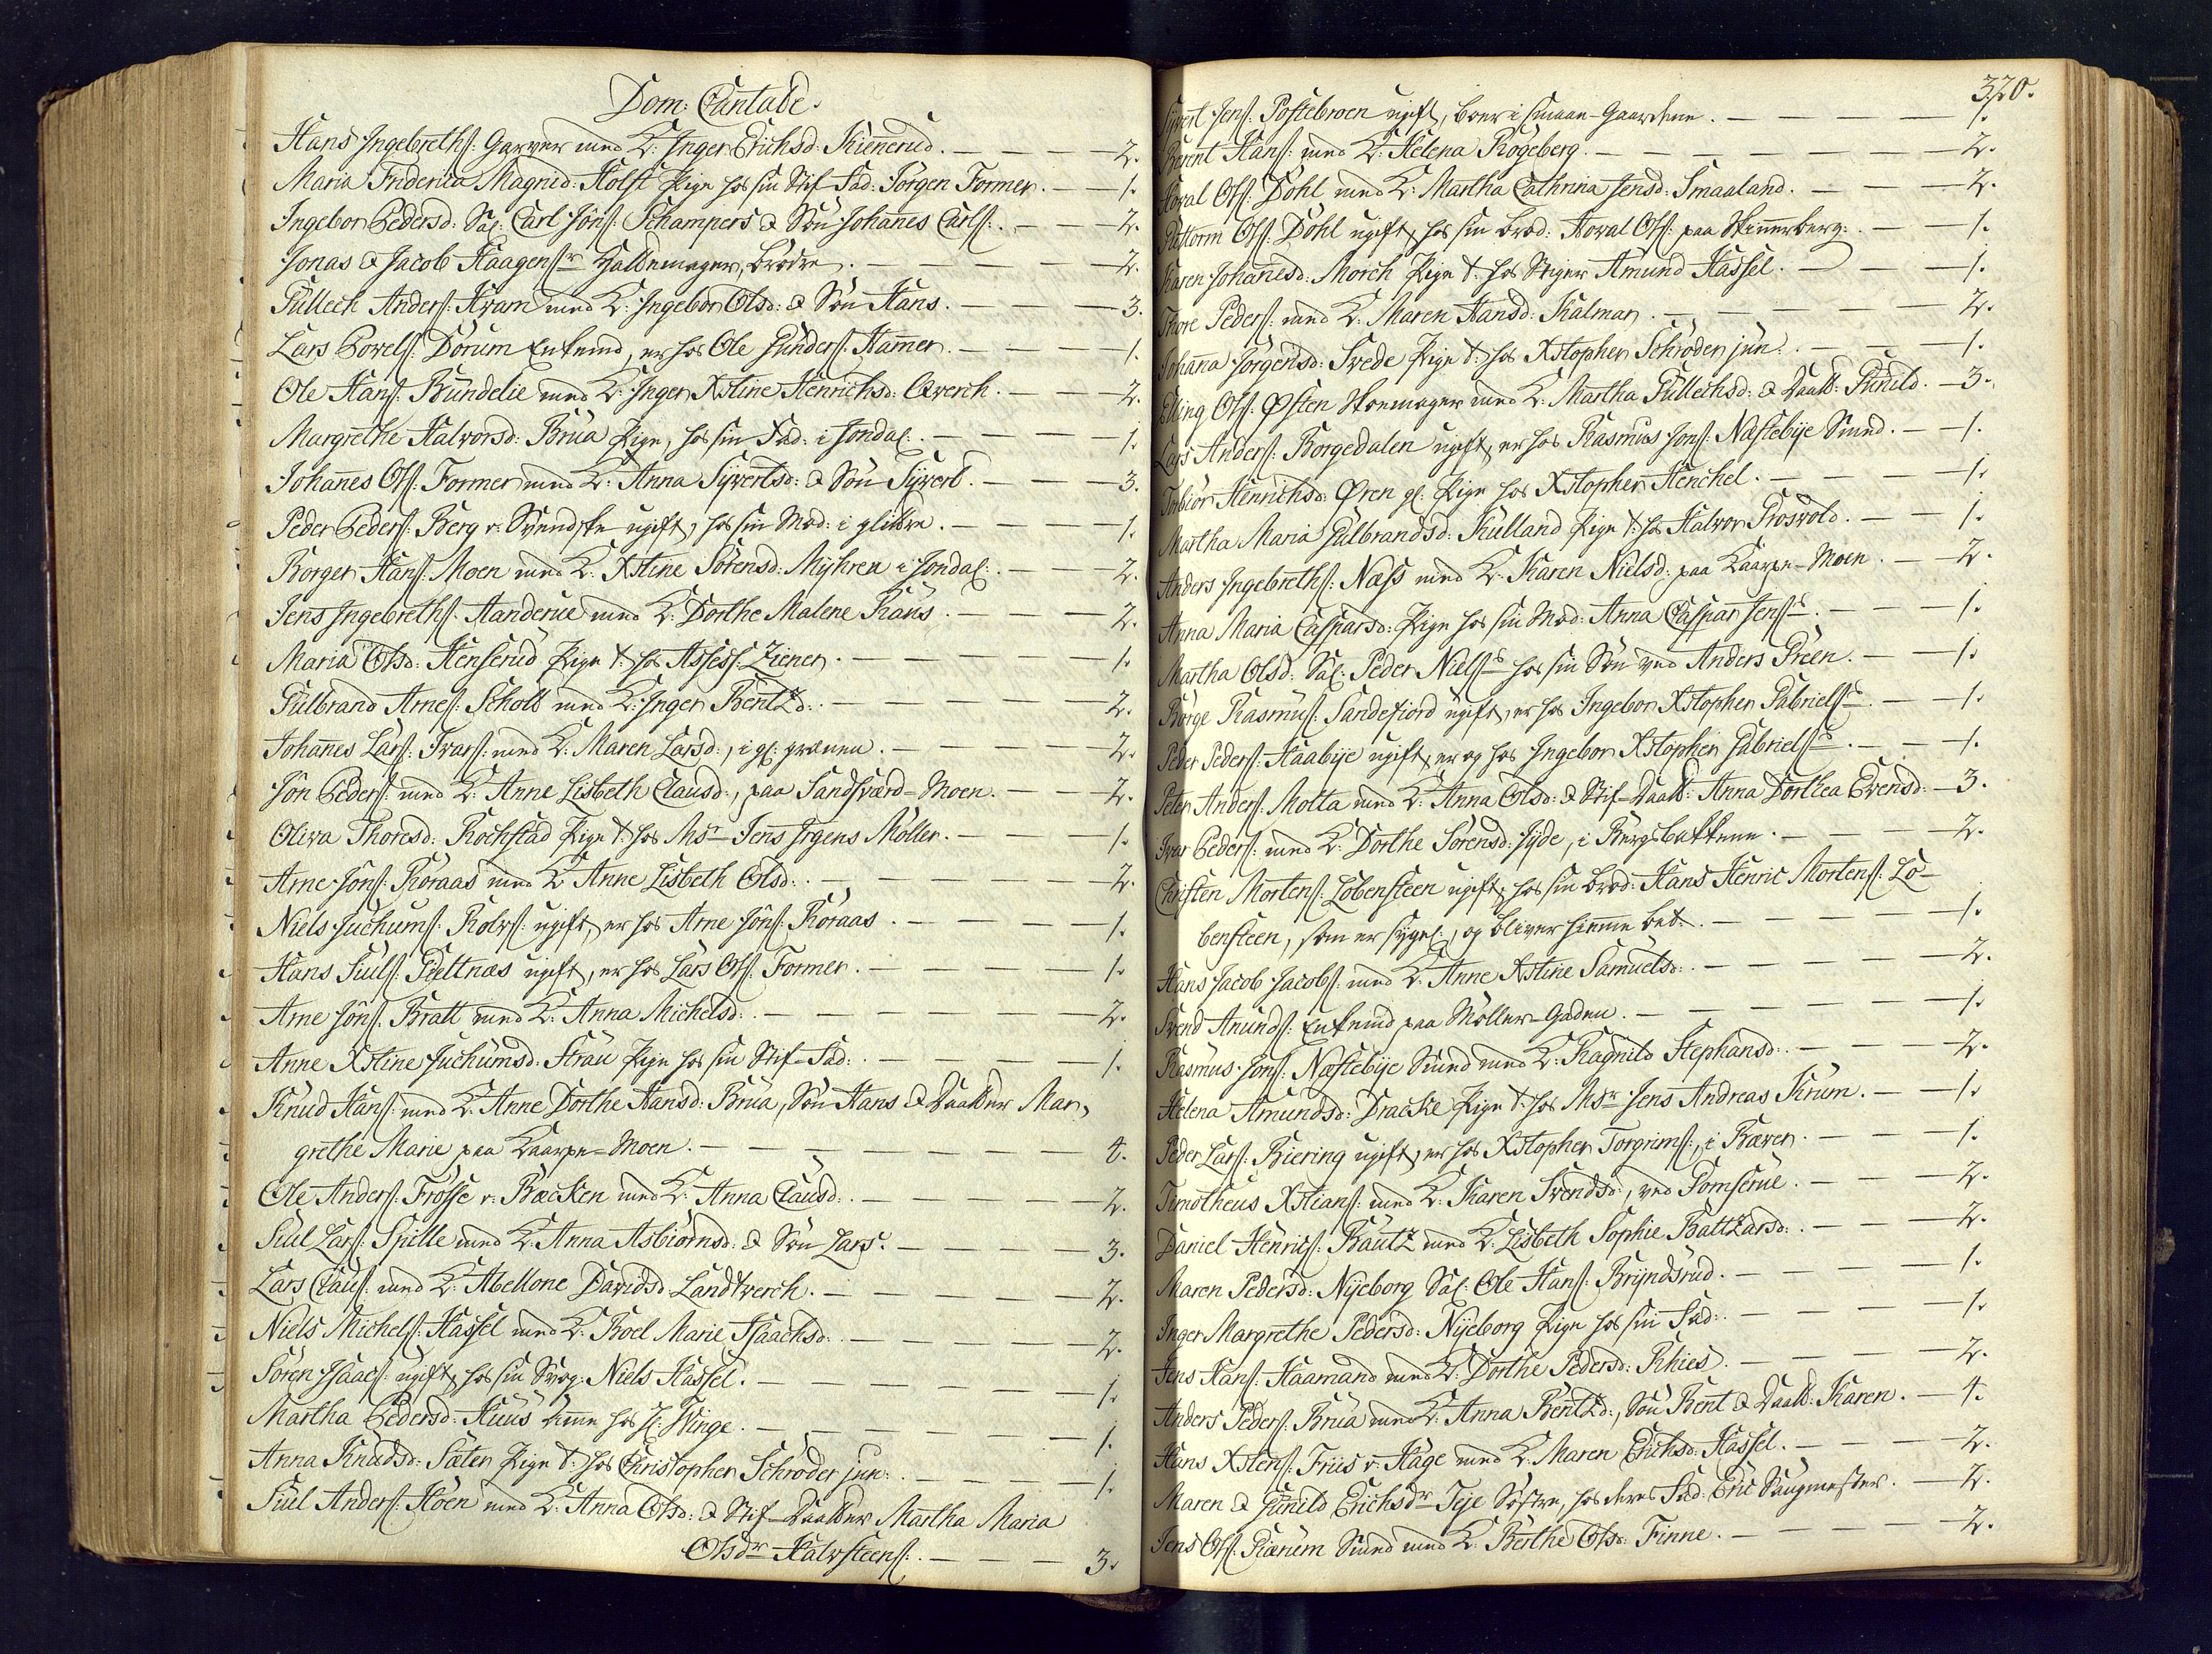 Dom: Cantate.
Hans Ingebreths: Garver med K: Inger Erichsd: Kienerud. — — — 2.
Maria Friderica Magnid: Holst Pige hos sin Stif-Fad: Jörgen Former. — 1.
Ingebor Pedersd: Sal: Carl Jöns: Schampers & Sön Johanes Carls:. — — 2.
Jonas & Jacob Haagensr brödre. — — — 2.
Gullech Anders: Kvam med K: Ingebor Olsd: & Sön Hans. — — — 3.
Lars Povels: Dörum Enkemd, er hos Ole Gunders: Hamer. — — — 1.
Ole Hans: Bundelie med K: Inger Xstine Henrichsd: Qverch. — — 2.
Margrethe Halvorsd: Brua Pige, hos sin Fad: i Jondal:. — — — 1.
Johanes Ols: Former med K: Anna Syvertsd: & Sön Syvert. — — — 3.
Peder Peders: Berg v: Svendske ugift, hos sin Mod: i glittre. — — — 1.
Borger Hans: Moen med K: Xstine Sörensd: Myhren i Jondal:. — — 2.
Jens Ingebreths: Aanderue med K: Dorthe Malene Raus. — — — 2.
Maria Olsd: Henserud Pige t: hos Assess: Ziener. — — — 1.
Gulbrand Arnes: Schott med K: Inger Bentzd:. — — — 2.
Johanes Lars: Ivars: med K: Maren Larsd:, i gl: grænen. — — — 2.
Jön Peders: med K: Anne Lisbeth Clausd:, paa Sandsværd-Moen. — — 2.
Oliva Thoresd: Rochstad Pige t: hos Msr Jens Jrgens Möller. — — — 1.
Arne Jöns: Röraas med K: Anne Lisbeth Olsd:. — — — 2.
Niels Juchums: Rolvs: ugift, er hos Arne Jöns: Röraas. — — — 1.
Hans Siuls: Tveltnæs ugift, er hos Lars Ols: Former. — — — 1.
Arne Jöns: Bratt med K: Anna Michelsd:. — — — 2.
Anne Xstine Juchumsd: Strau Pige hos sin Stif-Fad:. — — — 1.
Knud Hans: med K: Anne Dorthe Hansd: Brua, Sön Hans & Daatter Mar,
grethe Marie paa Kaarpe-Moen. — — — 4.
Ole Anders: Frösse v: Bæcken med K: Anna Clausd:. — — — 2.
Siul Lars: Spille med K: Anna Asbiödnsd: & Sön Lars. — — — 3.
Lars Claus: med K: Abellone Davidsd: Landtverch. — — — 2.
Niels Michels: Hassel med K: Boel Marie Isaachsd:. — — — 2.
Sören Isaacs: ugift, hos sin Svog: Niels Hassel. — — — 1.
Martha Pedersd: Huus Amme hos H: Winge. — — — 1.
Anna Knudsd: Sæter Pige t: hos Christopher Schröder jun:. — — — 1.
Siul Anders: Höen med K: Anna Olsd: & Stif-Daatter Martha Maria
Olsdr Halvsteens:. — — — 3.
320.
Syvert Jens: Postebroen ugift, boer i Smaae-Gaardene. — — — 1.
Berent Hans: med K: Helena Rögeberg. — — — 2.
Hoval Ols: Döhl med K: Martha Cathrina Jensd: Smaaland. — — — 2.
Guttorm Ols: Döhl ugift, hos sin brod: Hoval Ols: paa Skinnerberg:. — — 1.
Karen Johanesd: Morch Pige t: hos Stiger Amund Hassel. — — 1.
Thore Peders: med K: Maren Hansd: Kalmar. — — — 2.
Johana Jörgensd: Svede Pige t: hos Xstopher Schröder jun:. — — 1.
Elling Ols: Östen Skoemager med K: Martha Gullechsd: & Daatt: Gunild. — 3.
Lars Anders: Borgedalen ugift, er hos Rasmus Jons: Næstebye Smed. — 1.
Torbior Henrichsd: Ören gl: Pige hos Xstopher Henchel. — — — 1.
Martha Maria Gulbrandsd: Rulland Pige t: hos Halvor Rosvold. — — 1.
Anders Ingebreths: Næss med K: Karen Nielsd: paa Kaarpe-Moen. — 2.
Anna Maria Caspersd: Pige hos sin Mod: Anna Caspar Jenss. — — 1.
Martha Olsd: Sal: Peder Nielss hos sin Sön ved Anders Green. — — 1.
Börge Rasmus: Sandefiord ugift, er hos Ingebor Xstopher Gabrielss. — — 1.
Peder Peders: Haabye ugift, er og hos Ingebor Xstopher Gabrielss. — — 1.
Peter Anders: Molta med K: Anna Olsd: & Stif-Daatt: Anna Dorthea Evensd: — 3.
Ivar Peders: med K: Dorthe Sörensd: Jyde, i Bergsbakkene. — — — 2.
Christen Mortens: Lobensteen ugift, hos sin brod: Hans Henric Mortens: Lo-
bensteen, som er sygel:, og bliver hiemme bet:. — — — 1.
Hans Jacob Jacobs: med K: Anne Xstine Samuelsd:. — — — 2.
Svend Anunds: Enkemd paa Möller-Gaden. — — — 1.
Rasmus Jons: Næstebye Smed med K: Ragnild Stephansd:. — — — 2.
Helena Amundsd: Dracke Pige t: hos Msr Jens Andreas Krum. — 1.
Peder Lars: Biering ugift, er hos Xstopher Torgrims:, i Bæver. — — 1.
Timotheus Xstians: med K: Karen Svendsd:, ved Gomserue. — — 2.
Daniel Henrics: Bautz med K: Lisbeth Sophie Baltzarsd:. — — 2.
Maren Pedersd: Nyeborg Sal: Ole Hans: Bryndsrud. — — — 1.
Inger Margrethe Pedersd: Nyeborg Pige hos sin Fad:. — — — 1.
Jens Hans: Haamand med K: Dorthe Pedersd: Rhies. — — — 2.
Anders Peders: Brua med K: Anna Bentzd:, Sön Bent & Daatt: Karen. — 4.
Hans Xstens: Friis v: Hage med K: Maren Erichsd: Hassel. — — 2.
Maren & Gunild Erichsdr Teje Söstre, hos deres Fad: Eric Saugmester. — 2.
Jens Ols: Giærum Smed med K: Berthe Olsd: Finne. — — — 2.